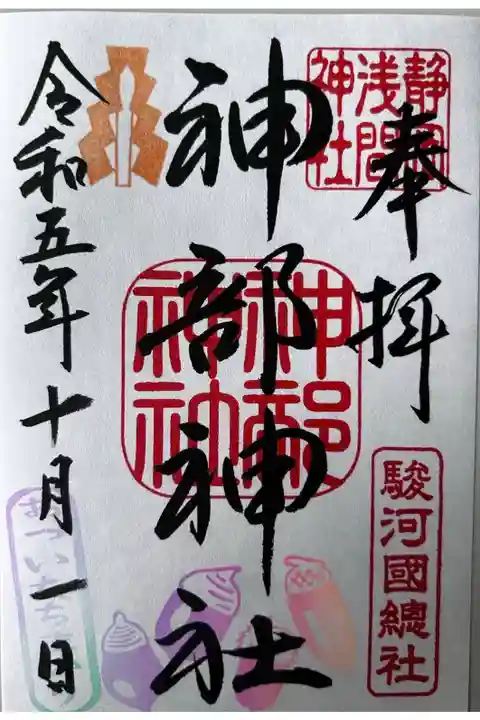 奉拝
静岡浅間神社
駿河國總社
神部神社
神部神社
令和五年十月一日
むついちご